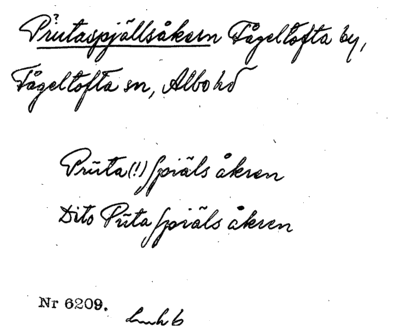 Prutaspjällsåkern Fågeltofta by,
Fågeltofta sn, Albo hd
Pruta(!)spiäls åkren
Dito Putaspiäls åkren
Nr 6209.